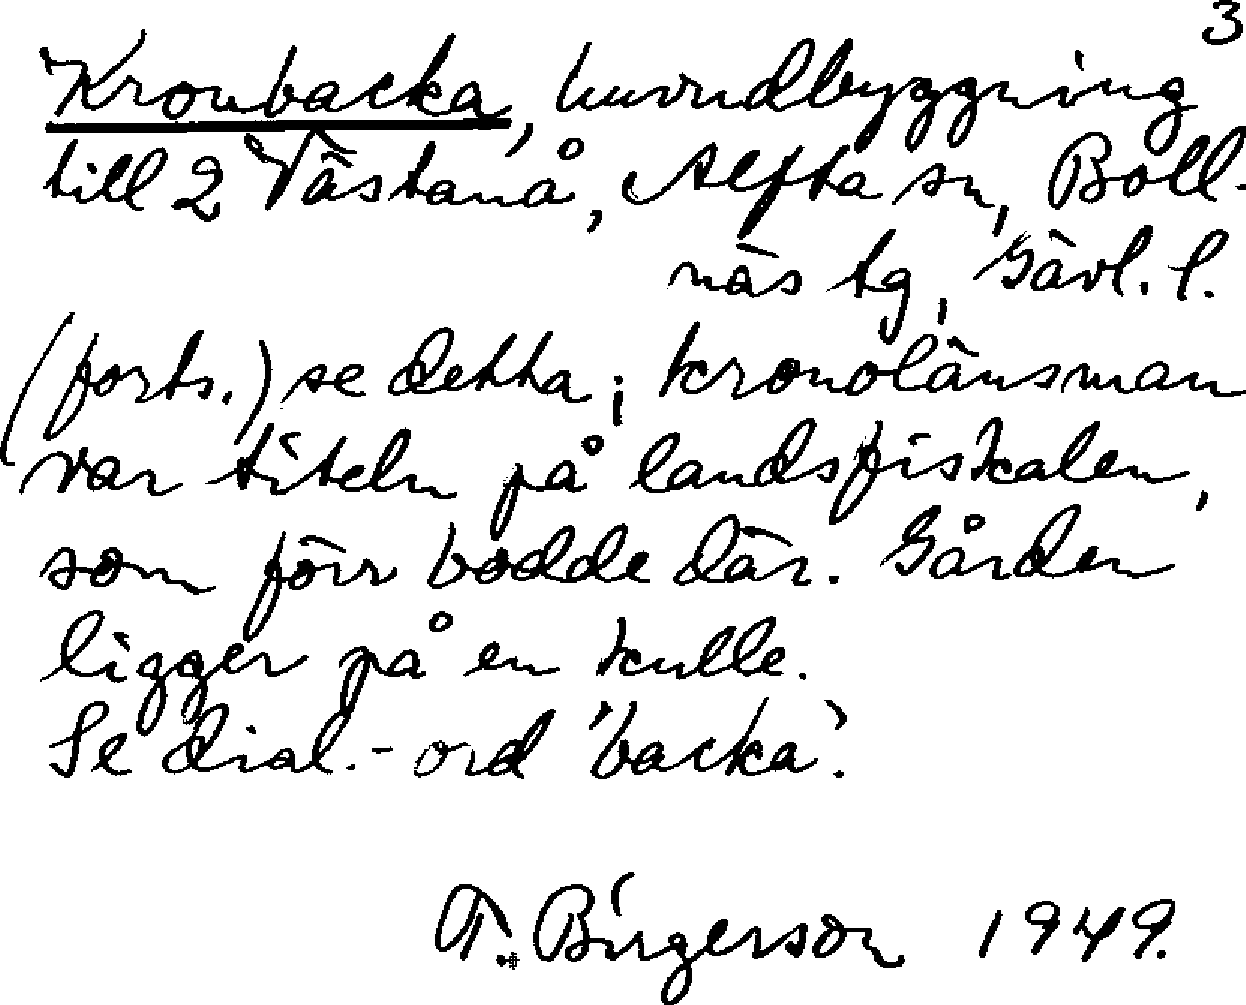 3
Kronbacka, huvudbyggning
till 2 Västanå, Alfta sn, Boll-
näs tg, Gävl. l.
(forts.) se detta; kronolänsman
var titeln på landsfiskalen,
som förr bodde där. Gården
ligger på en kulle.
Se dial.-ord 'backa'.
T. Birgerson 1949.